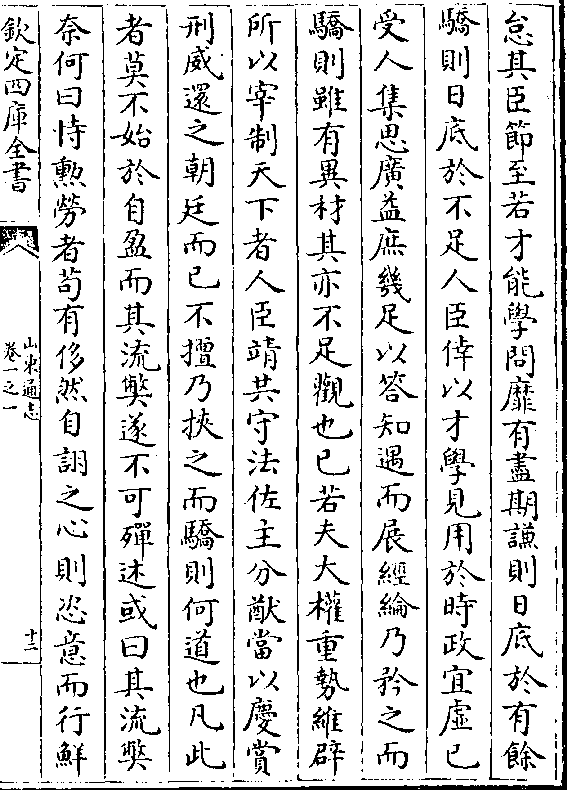 怠其臣節至若才能學問靡有盡期謙則日底於有餘
驕則日底於不足人臣倖以才學見用於時政宜虛已
受人集思廣益庶幾足以答知遇而展經綸乃矜之而
驕則雖有異材其亦不足觀也已若夫大權重勢維辟
所以宰制天下者人臣靖共守法佐主分猷當以慶賞
刑威還之朝廷而已不擅乃挾之而驕則何道也凡此
者莫不始於自盈而其流獘遂不可殫述或曰其流獘
奈何曰恃勲勞者苟有侈然自詡之心則恣意而行鮮
欽定四庫全書
山東通志
卷一之一
十二